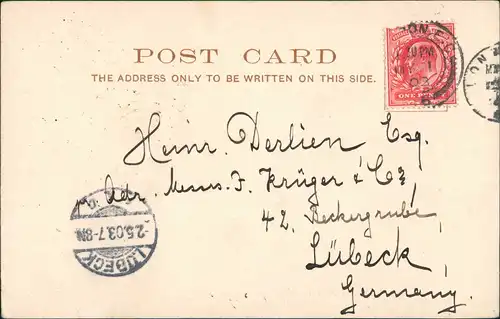 POST CARD
THE ADDRESS ONLY TO BE WRITTEN ON THIS SIDE.
ONE PENNY
Heinr. Derlien Esq.
Adr. Messrs. F. Krüger & Co,
42, Beckergrube,
Lübeck,
Germany.
-2.5.03.7-8N.
LÜBECK